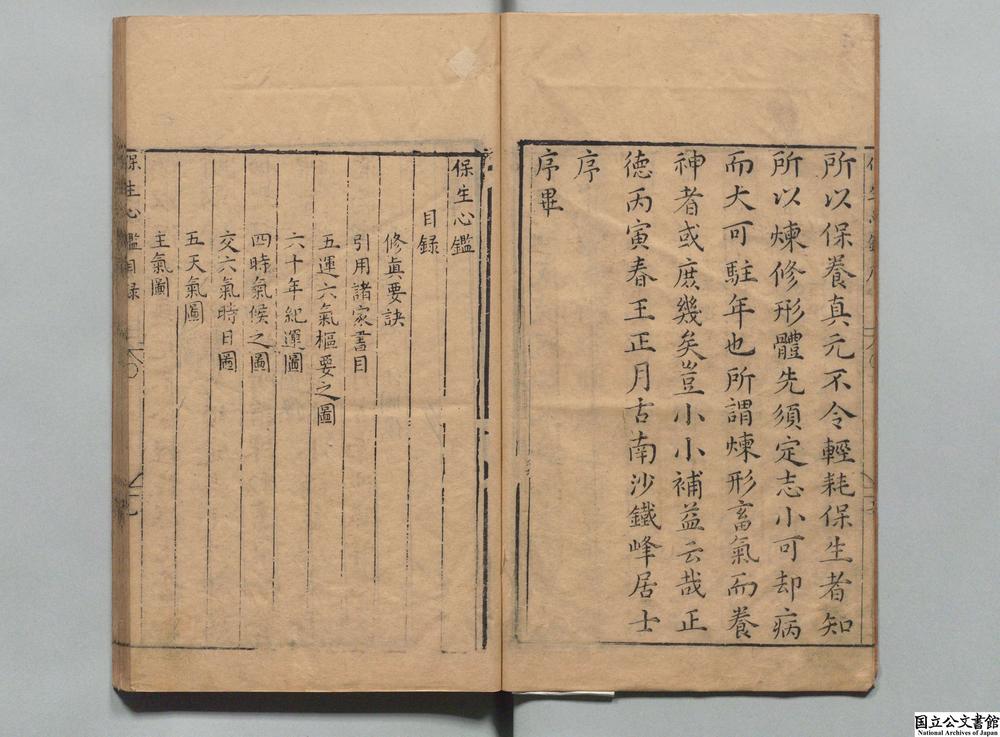 所以保養真元不令輕耗保生者知
所以煉修形體先須定志小可却病
而大可駐年也所謂煉形畜氣而養
神者或庶幾矣豈小小補益云哉正
德丙寅春王正月古南沙鐵峰居士
序
序畢
保生心鑑
目録
修眞要訣
引用諸家書目
五運六氣樞要之圖
六十年紀運圖
四時氣候之圖
交六氣時日圖
五天氣圖
主氣圖
保生心鑑目録
国立公文書館
National Archives of Japan